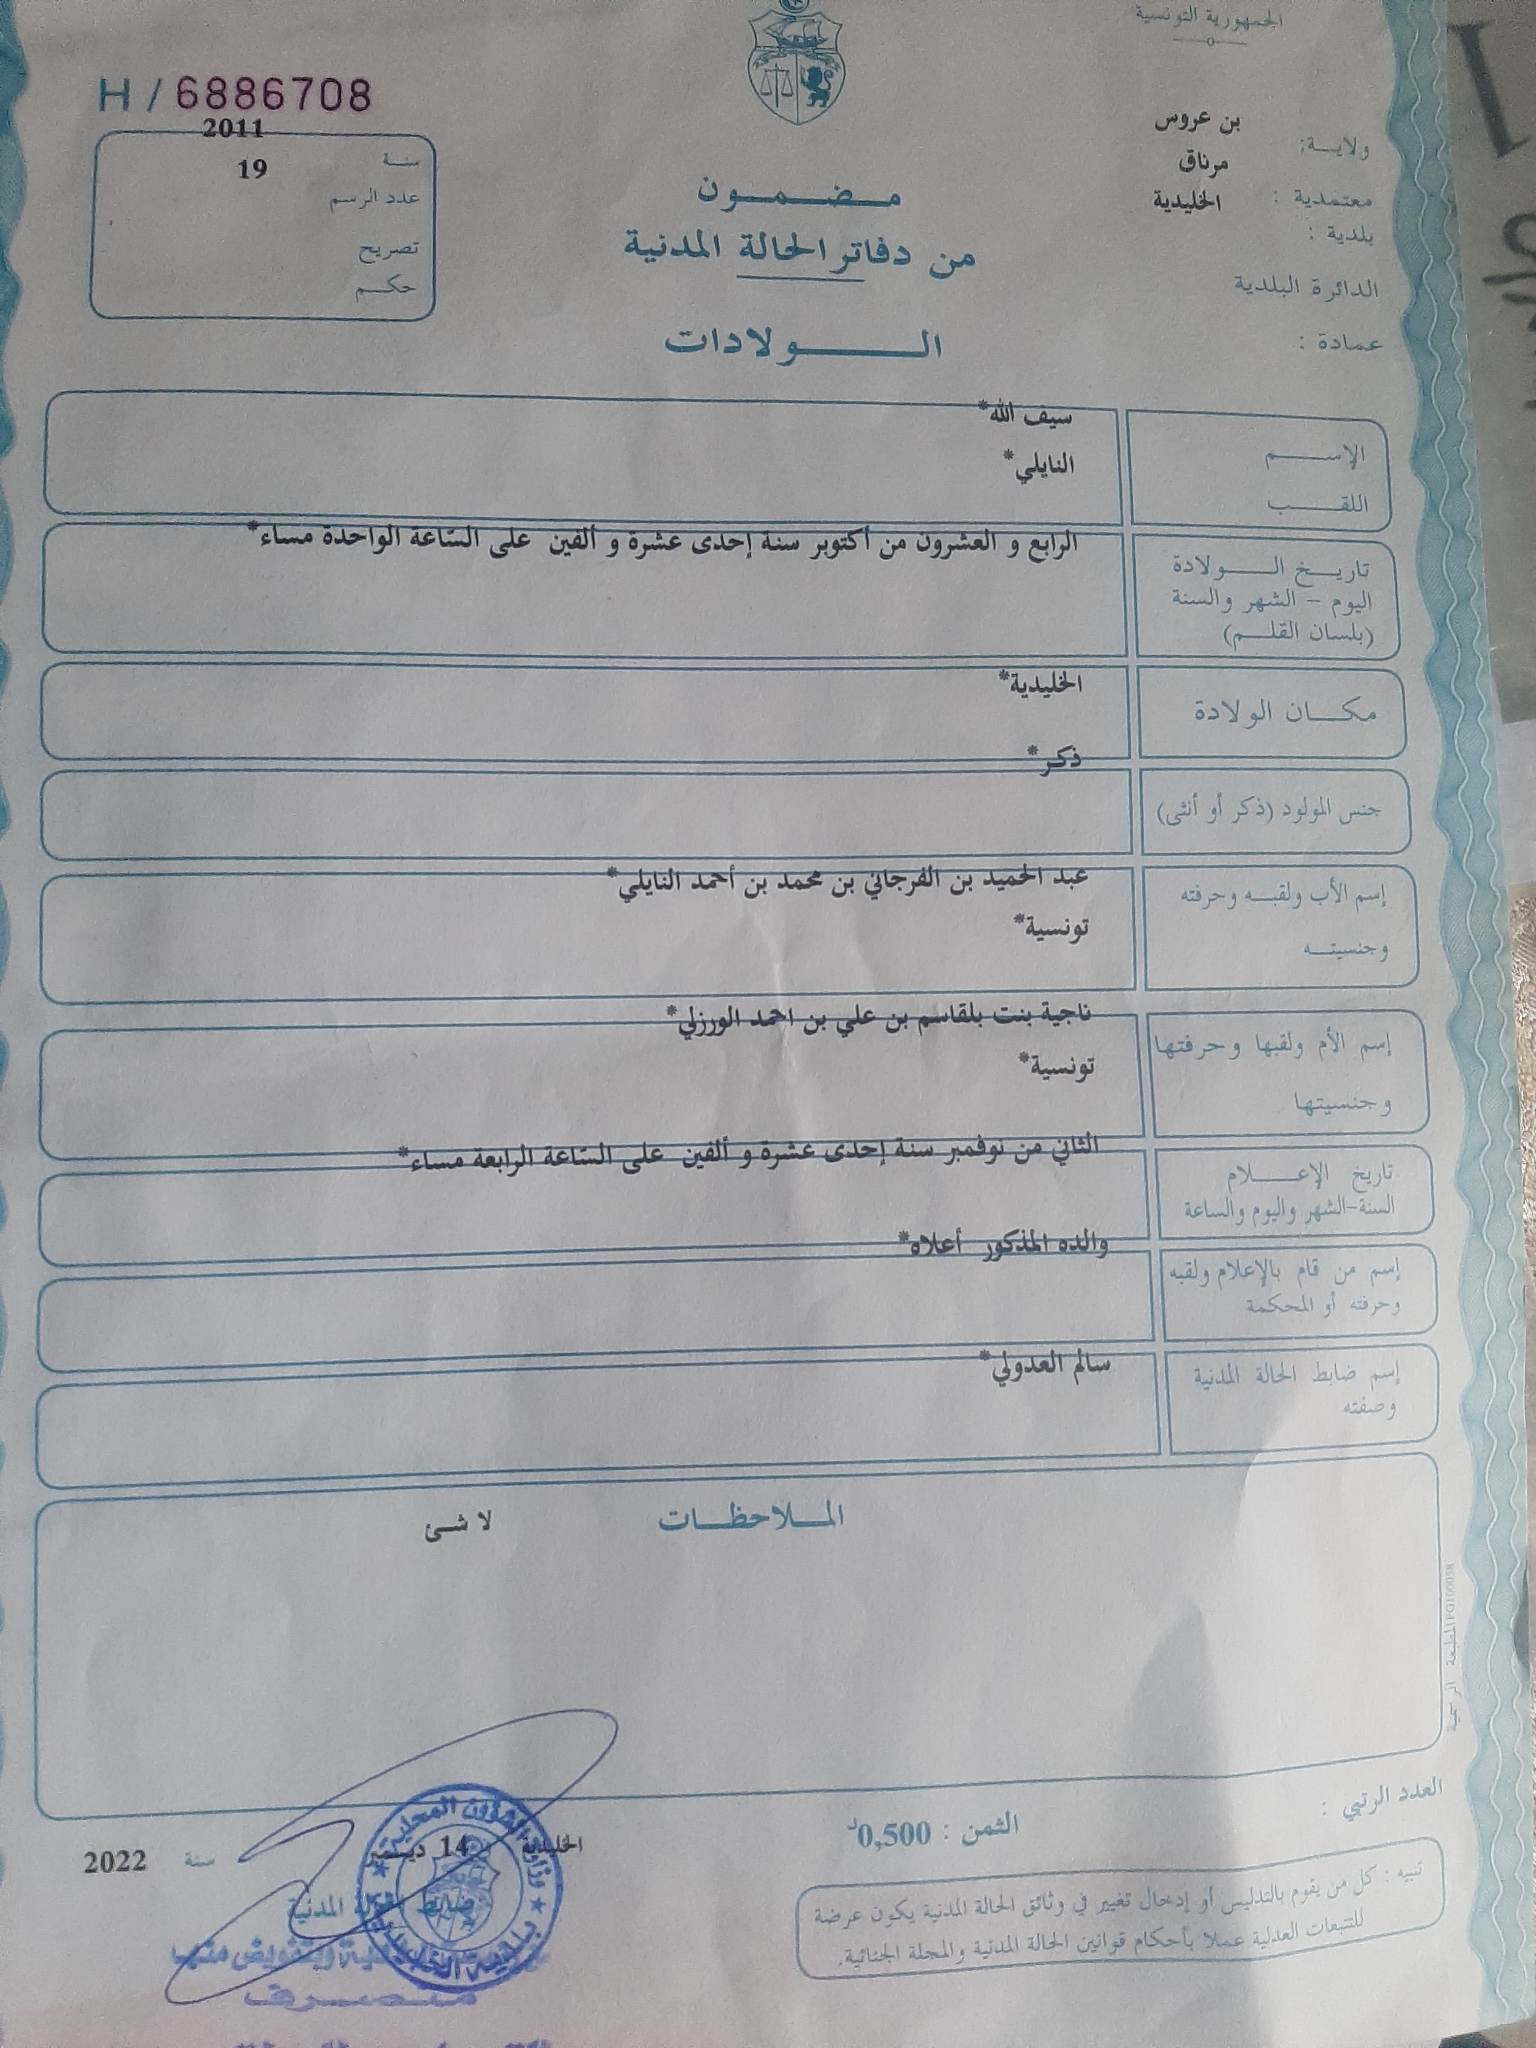 الجمهورية التونسية
H / 6886708
ولايـــة: بن عروس
معتمدية : مرناق
بلدية : الخليدية
الدائرة البلدية
عمادة :
سنـة 2011
عدد الرسم 19
تصريح
حكـم
مـضـمـون
من دفاتر الحالة المدنية
الـولادات
الإســـم سيف الله*
اللقـب النايلي*
تاريـخ الـولادة
اليوم - الشهر والسنة
(بلسان القلـم)
الرابع و العشرون من أكتوبر سنة إحدى عشرة و ألفين على السّاعة الواحدة مساء*
مكـان الولادة
الخليدية*
جنس المولود (ذكر أو أنثى)
ذكر*
إسم الأب ولقبـه وحرفته
وجنسيتـه
عبد الحميد بن الفرجاني بن محمد بن أحمد النايلي*
تونسية*
إسم الأم ولقبها وحرفتها
وجنسيتها
ناجية بنت بلقاسم بن علي بن احمد الورزلي*
تونسية*
تاريخ الإعـــلام
السنة-الشهر واليوم والساعة
الثاني من نوفمبر سنة إحدى عشرة و ألفين على السّاعة الرابعة مساء*
إسم من قام بالإعلام ولقبه
وحرفته أو المحكمة
والده المذكور أعلاه*
إسم ضابط الحالة المدنية
وصفته
سالم العدولي*
المـلاحظـات
لا شئ
المطبعة الرسمية
العدد الرتبي :
الثمن : 0,500د
تنبيه : كل من يقوم بالتدليس أو إدخال تغيير في وثائق الحالة المدنية يكون عرضة
للتتبعات العدلية عملا بأحكام قوانين الحالة المدنية والمجلة الجنائية.
الخليدية 14 ديسمبر سنة 2022
ضابط الحالة المدنية
وزارة الشؤون المحلية
بلدية الخليدية
وبتفويض منه
متصرف